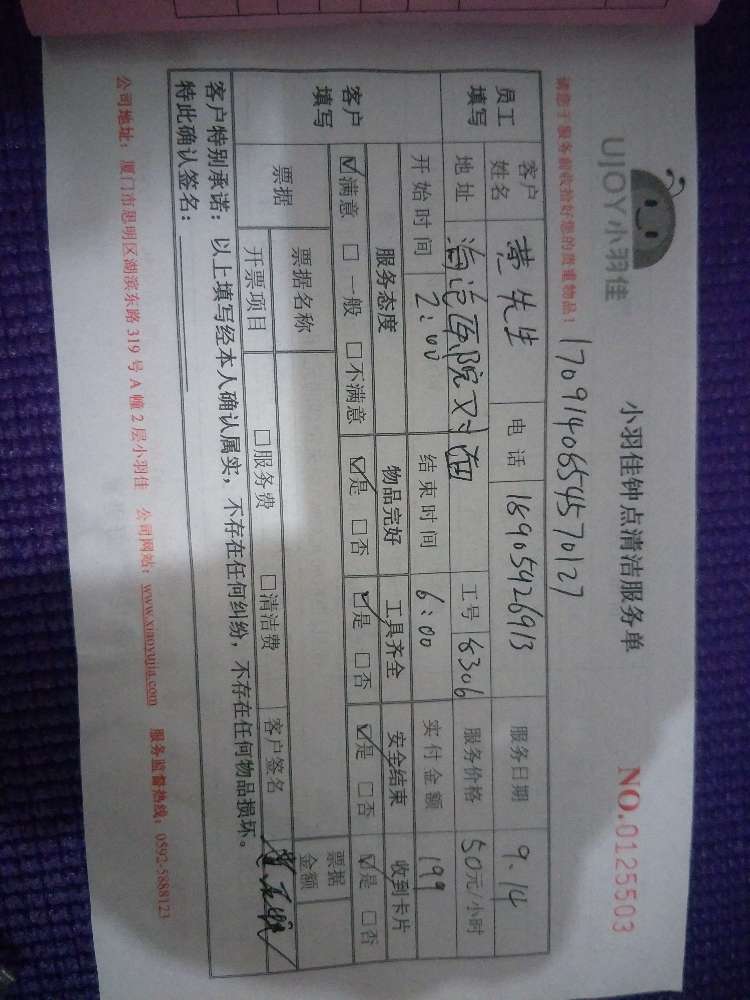 UJOY小羽佳
小羽佳钟点清洁服务单
NO.0125503
请您于服务前收拾好您的贵重物品！
170914065457 0127
员工填写
客户姓名 黄先生 电话 18905926913 服务日期 9.14
地址 海沧医院对面 工号 8306 服务价格 50元/小时
开始时间 2:00 结束时间 6:00 实付金额 199
客户填写
服务态度 物品完好 工具齐全 安全结束 收到卡片
☑满意 □一般 □不满意 ☑是 □否 ☑是 □否 ☑是 □否 ☑是 □否
票据 票据名称 票据金额
开票项目 □服务费 □清洁费 客户签名
客户特别承诺：以上填写经本人确认属实，不存在任何纠纷，不存在任何物品损坏。
特此确认签名：
公司地址：厦门市思明区湖滨东路319号A幢2层小羽佳 公司网站：www.xiaoyujia.com 服务监督热线：0592-5888123